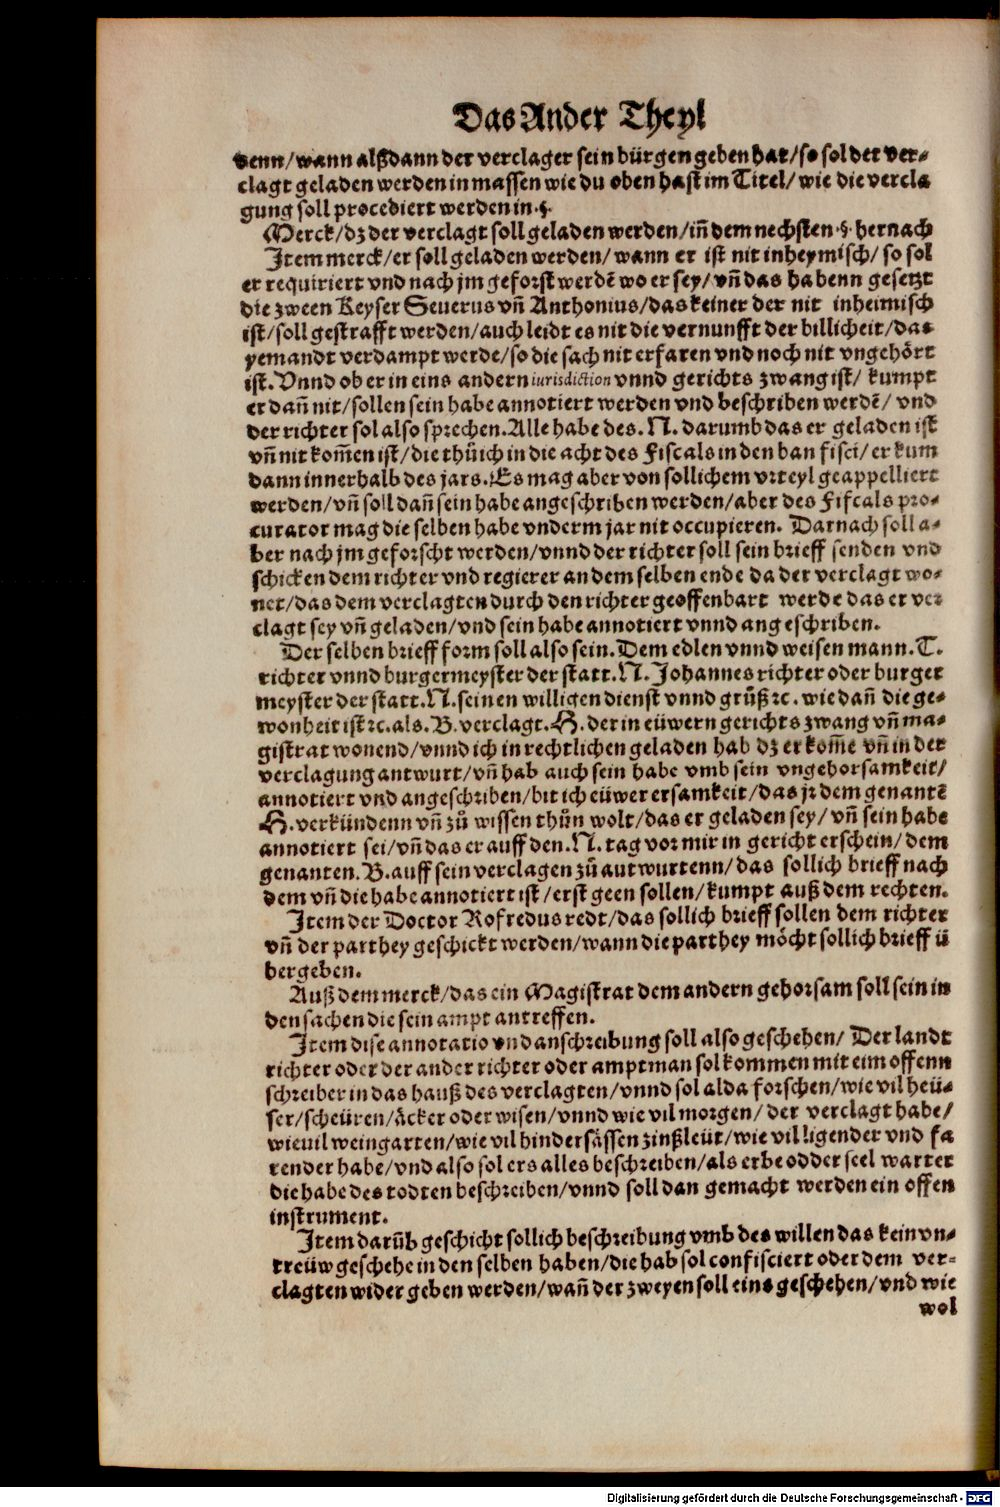 Das Ander Theyl
denn/wann alßdann der verclager sein bürgen geben hat/so sol der ver-
clagt geladen werden in massen wie du oben hast im Titel/ wie die vercla
gung soll procediert werden in .§.
Merck/dz der verclagt soll geladen werden/iñ dem nechsten .§. hernach
Item merck/er soll geladen werden/ wann er ist nit inheymisch/ so sol
er requiriert vnd nach jm geforst werdē wo er sey/ vñ das habenn gesetzt
die zween Keyser Seuerus vñ Anthonius/das keiner der nit inheimisch
ist/soll gestrafft werden/auch leidt es nit die vernunfft der billicheit/das
yemandt verdampt werde/so die sach nit erfaren vnd noch nit vngehört
ist. Vnnd ob er in eins andern iurisdiction vnnd gerichts zwang ist/ kumpt
er dañ nit/sollen sein habe annotiert werden vnd beschriben werdē/ vnd
der richter sol also sprechen. Alle habe des. N. darumb das er geladen ist
vñ nit kom̄en ist/die thůich in die acht des Fiscals in den ban fisci/er kum
dann innerhalb des jars. Es mag aber von sollichem vrteyl geappelliert
werden/vñ soll dañ sein habe angeschriben werden/aber des Fifcals pro-
curator mag die selben habe vnderm jar nit occupieren. Darnach soll a-
ber nach jm geforscht werden/vnnd der richter soll sein brieff senden vnd
schicken dem richter vnd regierer an dem selben ende da der verclagt wo-
net/das dem verclagten durch den richter geoffenbart werde das er ver
clagt sey vñ geladen/vnd sein habe annotiert vnnd angeschriben.
Der selben brieff form soll also sein. Dem edlen vnnd weisen mann. T.
richter vnnd burgermeyster der statt. N. Johannes richter oder burger
meyster der statt. N. seinen willigen dienst vnnd grůß ꝛc. wie dañ die ge-
wonheit ist ꝛc. als. B. verclagt. H. der in eüwern gerichts zwang vñ ma-
gistrat wonend/vnnd ich in rechtlichen geladen hab dz er kom̄e vñ in der
verclagung antwurt/vñ hab auch sein habe vmb sein vngehorsamkeit/
annotiert vnd angeschriben/bit ich eüwer ersamkeit/das jr dem genantē
H. verkündenn vñ zů wissen thůn wolt/das er geladen sey/ vñ sein habe
annotiert sei/vñ das er auff den. N. tag vor mir in gericht erschein/ dem
genanten. B. auff sein verclagen zů autwurtenn/das sollich brieff nach
dem vñ die habe annotiert ist/erst geen sollen/kumpt auß dem rechten.
Item der Doctor Rofredus redt/das sollich brieff sollen dem richter
vñ der parthey geschickt werden/wann die parthey möcht sollich brieff ü
bergeben.
Auß dem merck/das ein Magistrat dem andern gehorsam soll sein in
den sachen die sein ampt antreffen.
Item dise annotatio vnd anschreibung soll also geschehen/ Der landt
richter oder der ander richter oder amptman sol kommen mit eim offenn
schreiber in das hauß des verclagten/vnnd sol alda forschen/wie vil heü-
ser/scheüren/äcker oder wisen/vnnd wie vil morgen/ der verclagt habe/
wieuil weingarten/wie vil hindersässen zinßleüt/wie vil ligender vnd fa
render habe/vnd also sol ers alles beschreiben/als erbe odder seel warter
die habe des todten beschreiben/vnnd soll dan gemacht werden ein offen
instrument.
Item darůb geschicht sollich beschreibung vmb des willen das kein vn-
treüw geschehe in den selben haben/die hab sol confisciert oder dem ver-
clagten wider geben werden/wañ der zweyen soll eins geschehen/vnd wie
wol
Digitalisierung gefördert durch die Deutsche Forschungsgemeinschaft - DFG